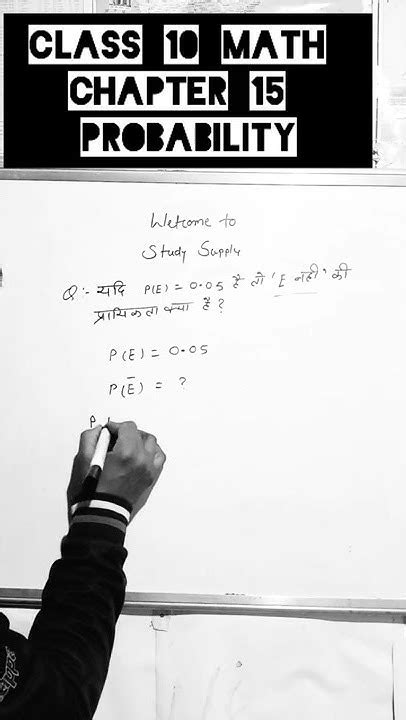 CLASS 10 MATH
CHAPTER 15
PROBABILITY
Welcome to
Study Supply
Q:- यदि P(E) = 0.05 है तो 'E नहीं' की
प्रायिकता क्या है?
P(E) = 0.05
P(E̅) = ?
P